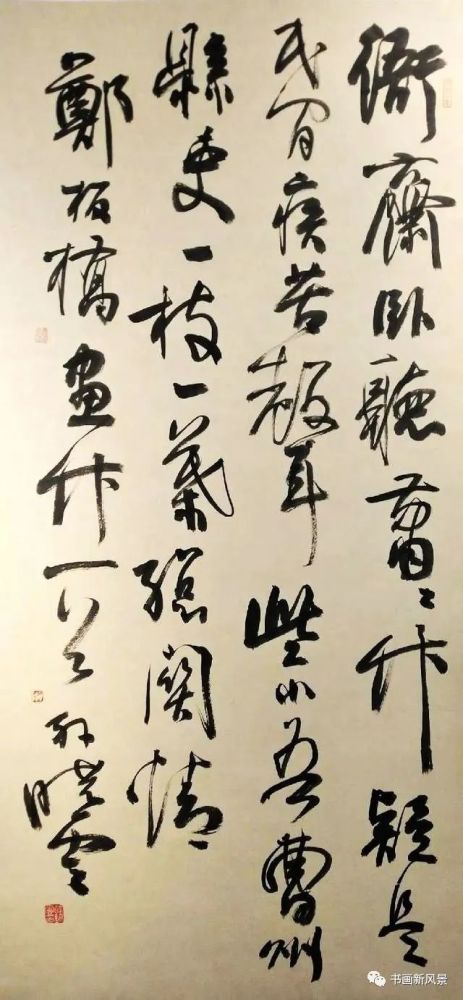 衙齋卧聽蕭〻竹疑是
民間疾苦聲些小吾曹州
縣吏一枝一葉總關情
鄭板橋畫竹一首孫曉雲
书画新风景